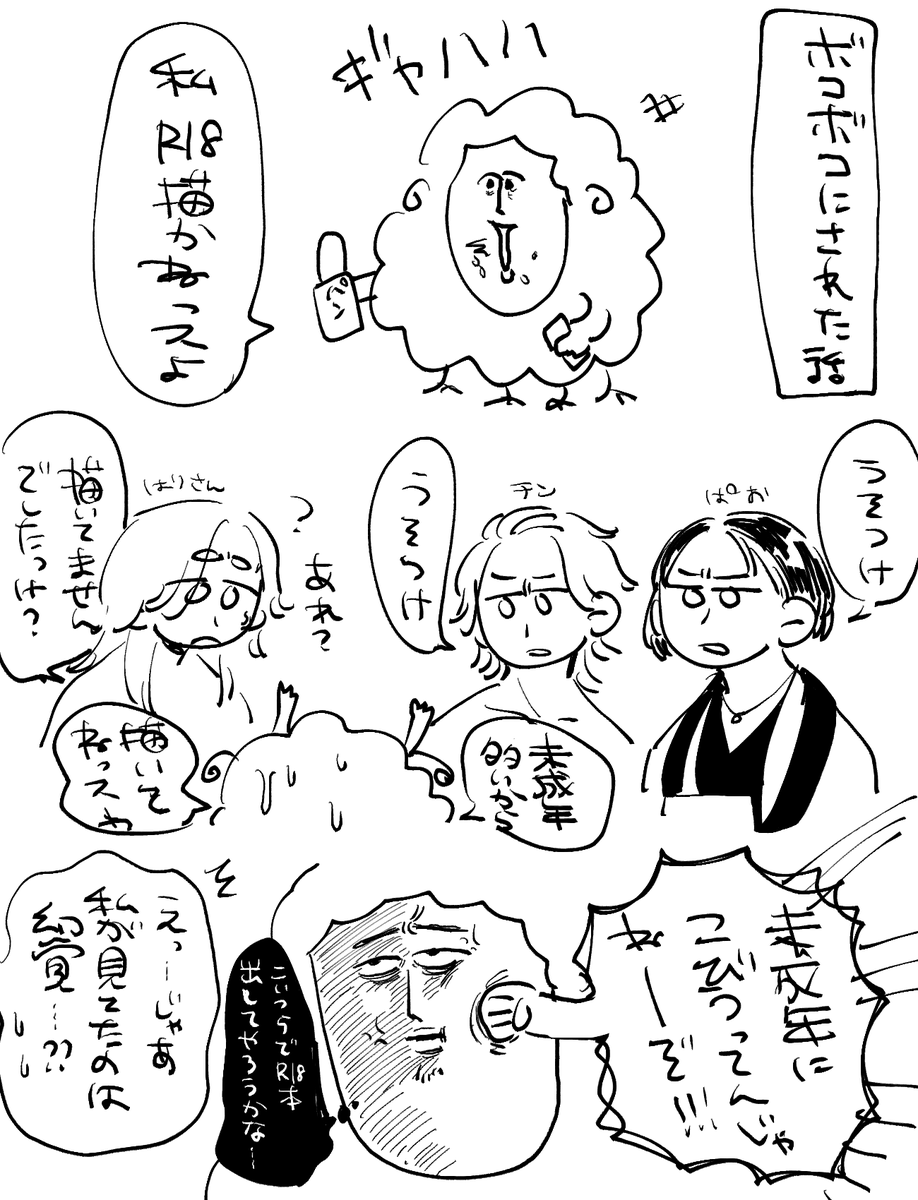 ボコボコにされた話
ギャハハハ
私
R18描かねっスよ
うそつけ
ぱお
チン
うそつけ
ばりさん
?
あれ?
描いてません
でしたっけ?
未成年
多いから
描いて
ねっスゎ
未成年に
こびうってんじゃ
ねーぞ!!!
こいつらでR18本
出してやろうかな…
えっ…じゃあ
私が見てたのは
幻覚…??